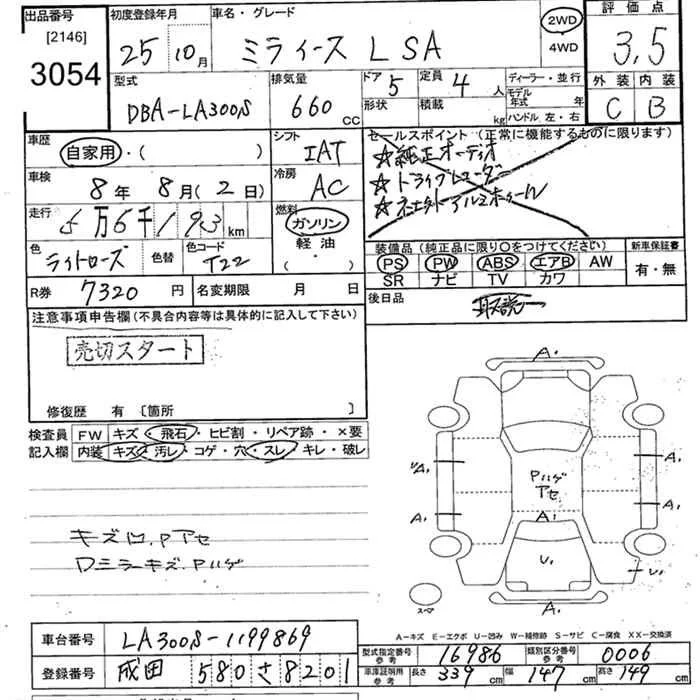 出品番号
[2146]
3054
初度登録年月
25 10月
車名・グレード
ミライース L SA
2WD
4WD
評価点
3.5
外装 内装
C B
型式
DBA-LA300S
排気量
660 CC
ドア 5
定員 4 人
形状
積載 kg
ディーラー・並行
モデル年式 年
ハンドル 左・右
車歴
自家用・( )
車検
8年 8月(2日)
走行
5万6千193 km
色
ライトローズ
色替
色コード
T22
シフト
IAT
冷房
AC
燃料
ガソリン
軽油
( ・ )
セールスポイント (正常に機能するものに限ります)
☆純正オーディオ
☆ドライブレコーダー
装備品 (純正品に限り○をつけてください)
PS PW ABS エアB AW
SR ナビ TV カワ
新車保証書
有・無
R券 7320 円
名変期限 月 日
後日品
取説
注意事項申告欄 (不具合内容等は具体的に記入して下さい)
売切スタート
修復歴 有 〔箇所 〕
検査員記入欄
FW キズ・飛石・ヒビ割・リペア跡・×要
内装 キズ・汚レ・コゲ・穴・スレ・キレ・破レ
キズ凹.Pアセ
Dミラーキズ.Pハゲ
A.
A.
A.
Pハゲ
アセ
A.
A.
A.
U.
U.
A.
スペア
A-キズ E-エクボ U-凹み W-補修跡 S-サビ C-腐食 XX-交換済
車台番号
LA300S-1199869
登録番号
成田 580 さ 8201
型式指定番号 参考
16986
類別区分番号 参考
0006
車庫証明用 参考
長さ 339 cm
幅 147 cm
高さ 149 cm